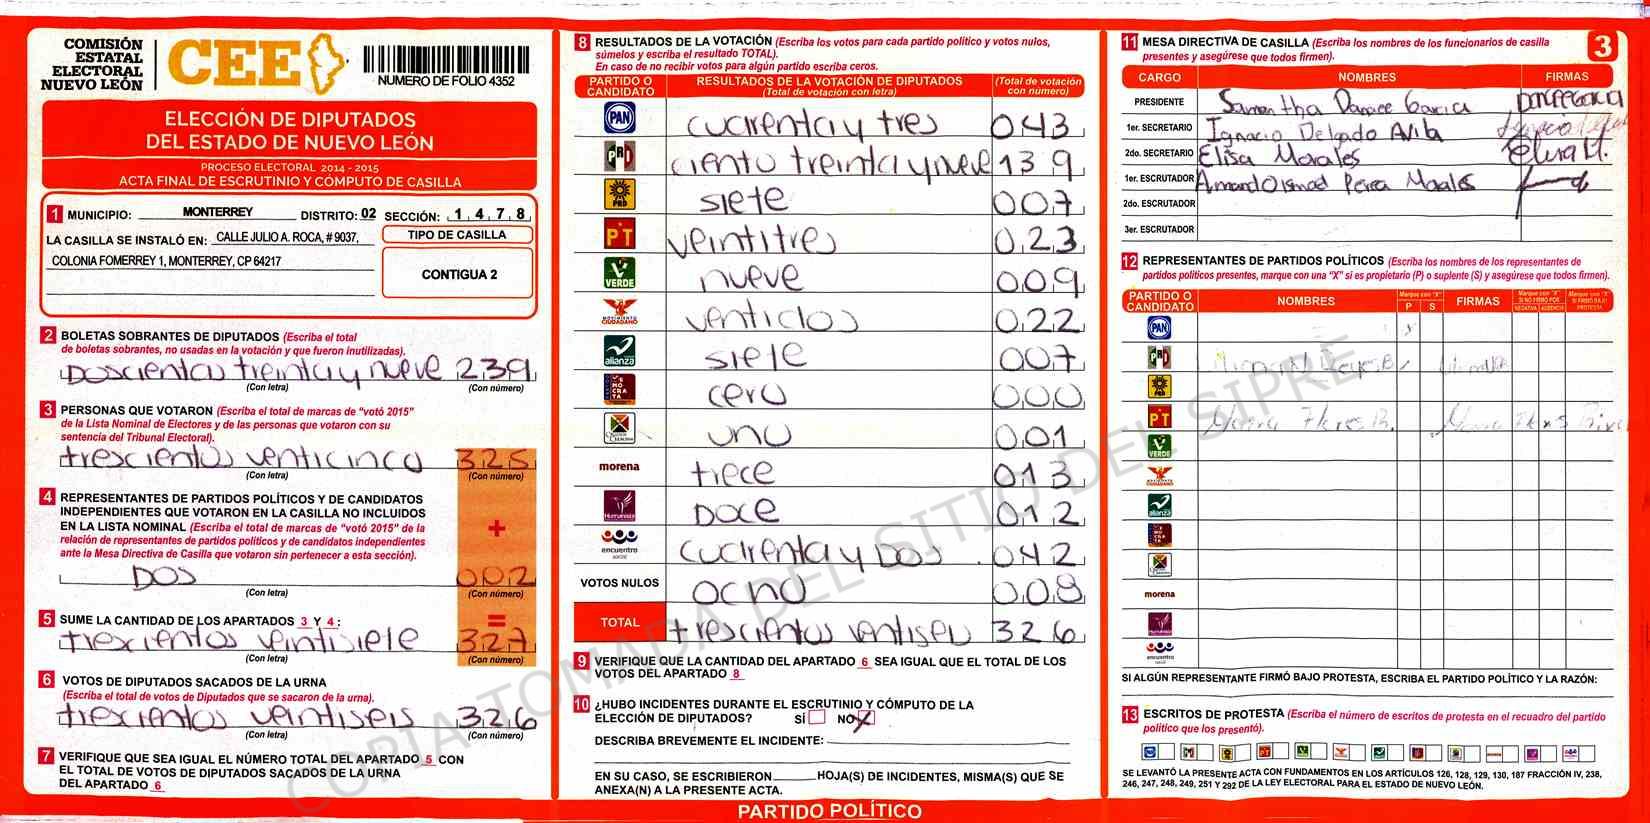 COMISIÓN
ESTATAL
ELECTORAL
NUEVO LEÓN
CEE
NUMERO DE FOLIO 4352
ELECCIÓN DE DIPUTADOS
DEL ESTADO DE NUEVO LEÓN
PROCESO ELECTORAL 2014 - 2015
ACTA FINAL DE ESCRUTINIO Y CÓMPUTO DE CASILLA
1 MUNICIPIO: MONTERREY DISTRITO: 02 SECCIÓN: 1478
LA CASILLA SE INSTALÓ EN: CALLE JULIO A. ROCA, # 9037,
COLONIA FOMERREY 1, MONTERREY, CP 64217
TIPO DE CASILLA
CONTIGUA 2
2 BOLETAS SOBRANTES DE DIPUTADOS (Escriba el total
de boletas sobrantes, no usadas en la votación y que fueron inutilizadas).
Doscientos treinta y nueve 239
(Con letra) (Con número)
3 PERSONAS QUE VOTARON (Escriba el total de marcas de "votó 2015"
de la Lista Nominal de Electores y de las personas que votaron con su
sentencia del Tribunal Electoral).
trescientos venticinco 325
(Con letra) (Con número)
4 REPRESENTANTES DE PARTIDOS POLÍTICOS Y DE CANDIDATOS
INDEPENDIENTES QUE VOTARON EN LA CASILLA NO INCLUIDOS
EN LA LISTA NOMINAL (Escriba el total de marcas de "votó 2015" de la
relación de representantes de partidos políticos y de candidatos independientes
ante la Mesa Directiva de Casilla que votaron sin pertenecer a esta sección).
+
DOS 002
(Con letra) (Con número)
5 SUME LA CANTIDAD DE LOS APARTADOS 3 Y 4 :
=
trescientos veintisiete 327
(Con letra) (Con número)
6 VOTOS DE DIPUTADOS SACADOS DE LA URNA
(Escriba el total de votos de Diputados que se sacaron de la urna).
trescientos veintiseis 326
(Con letra) (Con número)
7 VERIFIQUE QUE SEA IGUAL EL NÚMERO TOTAL DEL APARTADO 5 CON
EL TOTAL DE VOTOS DE DIPUTADOS SACADOS DE LA URNA
DEL APARTADO 6
8 RESULTADOS DE LA VOTACIÓN (Escriba los votos para cada partido político y votos nulos,
súmelos y escriba el resultado TOTAL).
En caso de no recibir votos para algún partido escriba ceros.
PARTIDO O CANDIDATO RESULTADOS DE LA VOTACIÓN DE DIPUTADOS (Total de votación con letra) (Total de votación con número)
PAN cuarenta y tres 043
PRI ciento treinta y nueve 139
PRD siete 007
PT veintitres 023
VERDE nueve 009
MOVIMIENTO CIUDADANO ventidos 022
alianza siete 007
DEMOCRATA cero 000
uno 001
morena trece 013
Humanista Doce 012
encuentro social cuarenta y Dos 042
VOTOS NULOS ocho 008
TOTAL trescientos ventiseis 326
9 VERIFIQUE QUE LA CANTIDAD DEL APARTADO 6 SEA IGUAL QUE EL TOTAL DE LOS
VOTOS DEL APARTADO 8
10 ¿HUBO INCIDENTES DURANTE EL ESCRUTINIO Y CÓMPUTO DE LA
ELECCIÓN DE DIPUTADOS? SÍ NO X
DESCRIBA BREVEMENTE EL INCIDENTE:
EN SU CASO, SE ESCRIBIERON HOJA(S) DE INCIDENTES, MISMA(S) QUE SE
ANEXA(N) A LA PRESENTE ACTA.
PARTIDO POLÍTICO
11 MESA DIRECTIVA DE CASILLA (Escriba los nombres de los funcionarios de casilla
presentes y asegúrese que todos firmen).
3
CARGO NOMBRES FIRMAS
PRESIDENTE Samantha Garcia
1er. SECRETARIO Ignacio Delgado Avila
2do. SECRETARIO Elisa Morales Elisa M.
1er. ESCRUTADOR Armando Ismael Perea Morales
2do. ESCRUTADOR
3er. ESCRUTADOR
12 REPRESENTANTES DE PARTIDOS POLÍTICOS (Escriba los nombres de los representantes de
partidos políticos presentes, marque con una "X" si es propietario (P) o suplente (S) y asegúrese que todos firmen).
PARTIDO O CANDIDATO NOMBRES Marque con "X" P S FIRMAS Marque con "X" SI NO FIRMÓ POR NEGATIVA AUSENCIA Marque con "X" SI FIRMÓ BAJO PROTESTA
PAN
PRI
PRD
PT Flores
VERDE
alianza
morena
encuentro social
SI ALGÚN REPRESENTANTE FIRMÓ BAJO PROTESTA, ESCRIBA EL PARTIDO POLÍTICO Y LA RAZÓN:
13 ESCRITOS DE PROTESTA (Escriba el número de escritos de protesta en el recuadro del partido
político que los presentó).
SE LEVANTÓ LA PRESENTE ACTA CON FUNDAMENTOS EN LOS ARTÍCULOS 126, 128, 129, 130, 187 FRACCIÓN IV, 238,
246, 247, 248, 249, 251 Y 292 DE LA LEY ELECTORAL PARA EL ESTADO DE NUEVO LEÓN.
COPIA TOMADA DEL SITIO DEL SIPRE